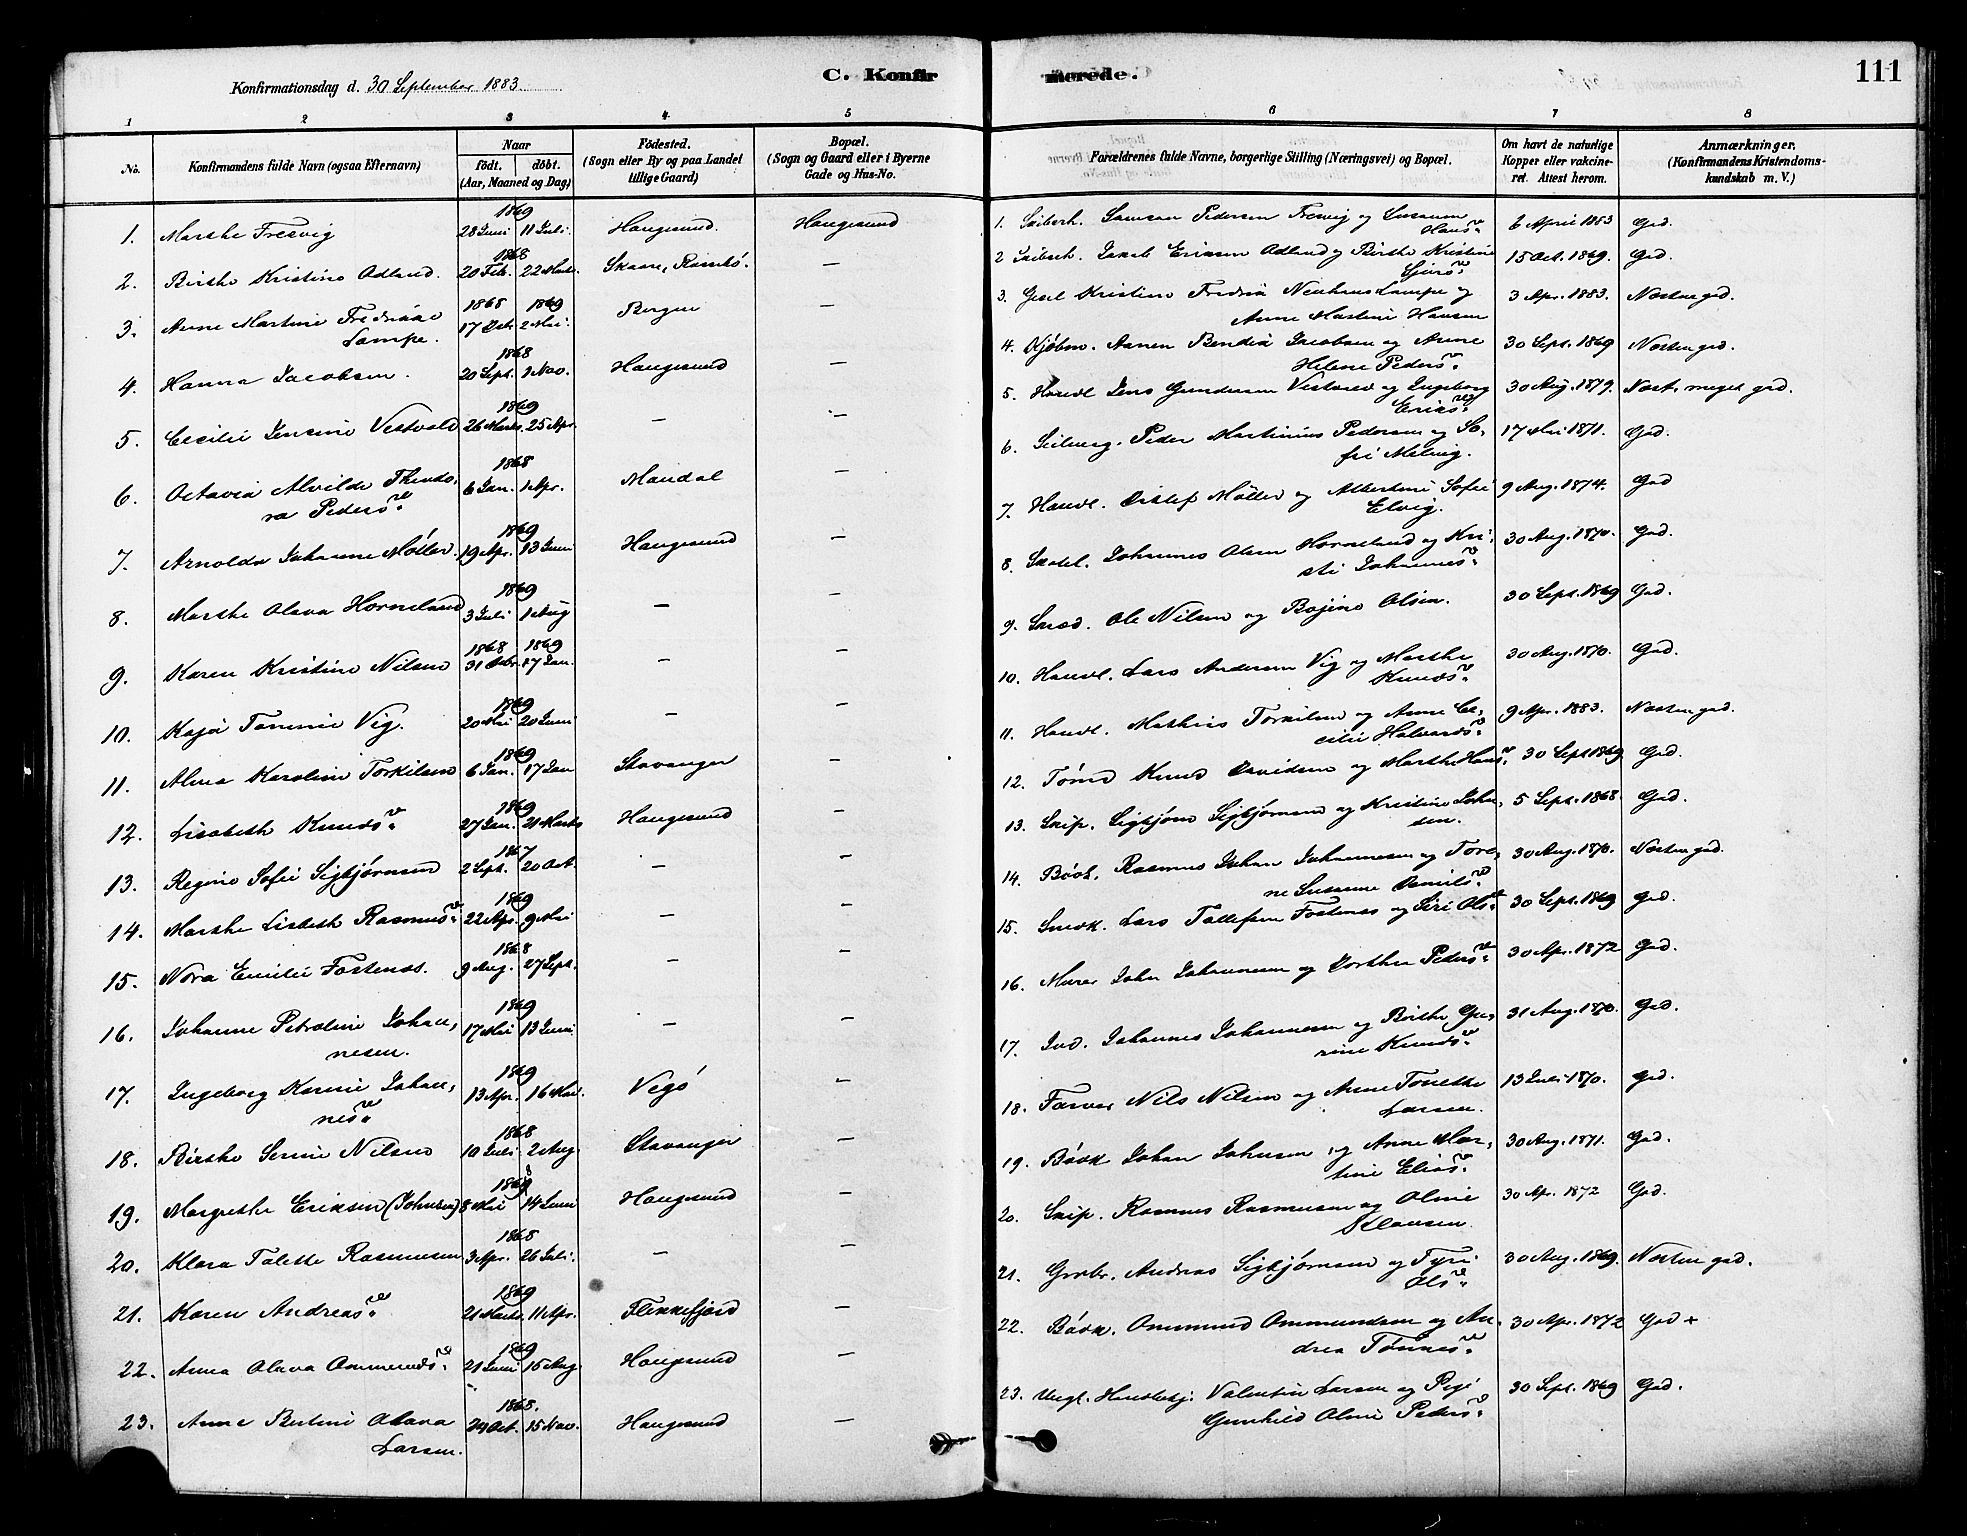 111
C. Konfirmerede.
Konfirmationsdag d. 30 September 1883.
1 2 3 4 5 6 7 8
No.
Konfirmandens fulde Navn (ogsaa Efternavn)
Naar
födt. döbt.
(Aar, Maaned og Dag)
Födested.
(Sogn eller By og paa Landet
tillige Gaard)
Bopæl.
(Sogn og Gaard eller i Byerne
Gade og Hus-No.
Forældrenes fulde Navne, borgerlige Stilling (Næringsvei) og Bopæl.
Om havt de naturlige
Kopper eller vakcine-
ret. Attest herom.
Anmærkninger.
(Konfirmandens Kristendoms-
kundskab m. V.)
1869
1. Marthe Fresvig 28 Juni 11 Juli Haugesund. Haugesund
1868
2. Birthe Kristine Adland. 20 Feb. 22 Marts Skaare, —
1868 1869
3. Anne Martine Fredrikke 17 2 Mai. Bergen —
Lampe.
1868
4. Hanna Jacobsen. 20 Sept. 1 Nov. Haugesund —
1869
5. Cecilie Jensine Vestvold 26 Marts 25 Apr. — —
1868
6. Octavia Alvilde Theodo, 6 Jan. 1 Apr. Mandal —
ra Pedersd.
1869
7. Arnolda Johanne Möller. 19 Apr. 13 Juni Haugesund —
1869
8. Marthe Olava Horneland 3 Juli 1 Aug — —
1868 1869
9. Karen Kristine Nilsen 31 17 Jan. — —
1869
10. Kaja Tomine Vig. 20 Mai 20 Juni — —
1869
11. Alma Karoline Torkilsen 6 Jan. 17 Jan Stavanger —
1869
12. Lisabeth Knudsd. 27 Jan. 21 Marts Haugesund —
1867
13. Regine Sofie Sigbjørnsen 2 Sept. 20 Oct. — —
1869
14. Marthe Lisbeth Rasmusd. 22 Apr. 9 Mai — —
1868
15. Nora Emilie Fostenæs. 9 Aug. 27 Sept. — —
1869
16. Johanne Petroline Johan, 17 Mai 13 Juni — —
nesen.
1869
17. Ingeborg Karine Johan, 13 Apr. 16 Mai. Vegö —
nesd.
1868
18. Birthe Serine Nilsen 10 Juli 2 Aug Stavanger —
1868
19. Margrethe Eriksen (Johnsen) 8 Mai 14 Juni Haugesund —
1868
20. Klara Talette Rasmussen 3 Apr. 26 Juli. — —
1869
21. Karen Andreasd. 21 Marts 11 Apr. Flekkefjord —
1869
22. Anna Olava Ommunds. 21 Juni 15 Aug Haugesund —
1868.
23. Anne Bertine Olava 24 Oct. 15 Nov. Haugesund —
Larsen.
1. Skibsk. Samson Pedersen Fresvig og Susanne 6 April 1883 God.
Hansd.
2 Skibsk. Jakob Eriksen Adland og Birthe Kristine 15 Oct. 1869. God.
Sjursd.
3. Kristine Fredrik Neuhaus Lampe og 3 Apr. 1883. Næsten god.
Anne Martine Hansen
4. Kjöbm. Aanen Bendix Jacobsen og Anne 30 Sept. 1869 Næsten god.
Helene Pedersd.
5. Handl. Jens Gundersen Vestvold og Ingeborg 30 Aug. 1879. Næst. meget god.
Eriksd.
6. Peder Martinius Pedersen og So, 17 Mai 1871. God.
fie Meling.
7. Handl. Ditlef Möller og Albertine Sofie 9 Aug. 1874. God
Elvig.
8. Johannes Olsen Horneland og Kri, 30 Aug. 1870. God.
sti Johannesd.
9. Smed. Ole Nilsen og Bojine Olsen. 30 Sept. 1869 God.
10. Handl. Lars Andersen Vig og Marthe 30 Aug. 1870. God.
Knudsd.
11. Handl. Mathias Torkilsen og Anne Ce, 9 Apr. 1883. Næsten god.
cilie Halvardsd.
12. Tømd Knud Davidsen og Marthe Hansd. 30 Sept 1869 God.
13. Skip. Sigbjørn Sigbjørnsen og Kristine Joha, 5 Sept. 1868. God.
sen.
14. Bödk. Rasmus Johan Johannesen og Tore, 30 Aug. 1870. Næsten god.
ne Susanne Danielsd.
15. Snedk. Lars Tollefsen Fostenæs og Siri Olsd. 30 Sept. 1869 God.
16. Murer John Johannesen og Dorthea Pedersd. 30 Apr. 1872 God.
17. Ind. Johannes Johannesen og Birthe Gu, 31 Aug. 1870. God.
rine Knudsd.
18. Farver Nils Nilsen og Anne Tonette 13 Juli 1870. God.
Larsen.
19. Bödk Johan Johnsen, og Anne Mar, 30 Aug. 1871. God.
tine Eliasd.
20. Skip. Rasmus Rasmussen og Oline 30 Apr. 1872 God.
Klausen.
21. Andreas Sigbjørnsen og Tyri 30 Aug. 1869. Næsten god.
Olsd.
22. Bödk. Ommund Ommundsen og An, 30 Apr. 1872 God +
drea Tönnesd.
23. Valentin Larsen og Pige 30 Sept. 1869 God.
Gunhild Oline Pedersd.